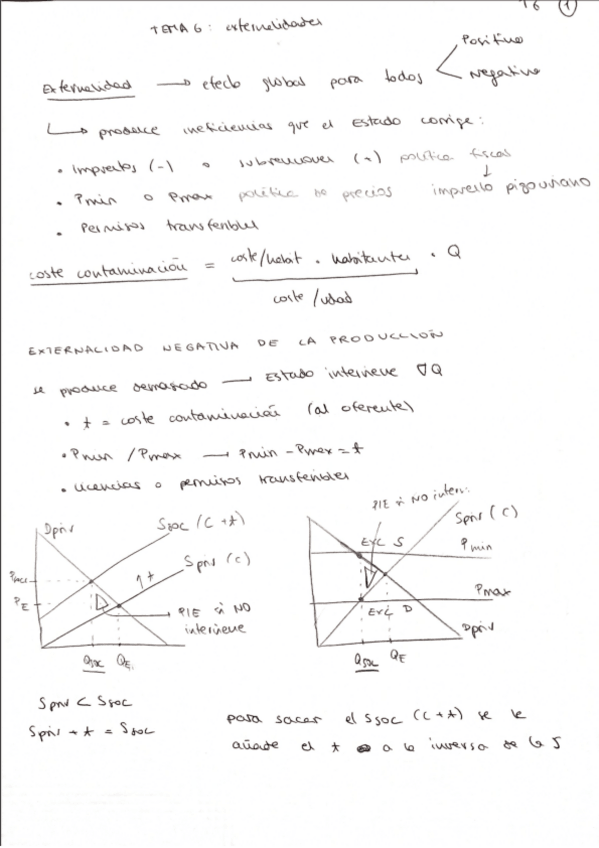 T6 (1)
TEMA 6: externalidades
Positiva
Externalidad → efecto global para todos
Negativa
↳ produce ineficiencias que el Estado corrige:
• Impuestos (-) o subvenciones (+) política fiscal
↓
• Pmin o Pmax política de precios impuesto pigouviano
• Permisos transferibles
coste contaminación = coste/habit . habitantes . Q
coste/udad
EXTERNALIDAD NEGATIVA DE LA PRODUCCIÓN
se produce demasiado → Estado interviene ∇Q
• t = coste contaminación (al oferente)
• Pmin / Pmax → Pmin - Pmax = t
• Licencias o permisos transferibles
PIE si NO interv.
Dpriv
Ssoc (C+t)
Spriv (C)
↑t
PE
PIE si NO
interviene
Qsoc QE
Spriv (C)
Exc S
Pmin
Pmax
Exc D
Dpriv
Qsoc QE
Spriv < Ssoc
Spriv + t = Ssoc
para sacar el Ssoc (C+t) se le
añade el t a la inversa de la S